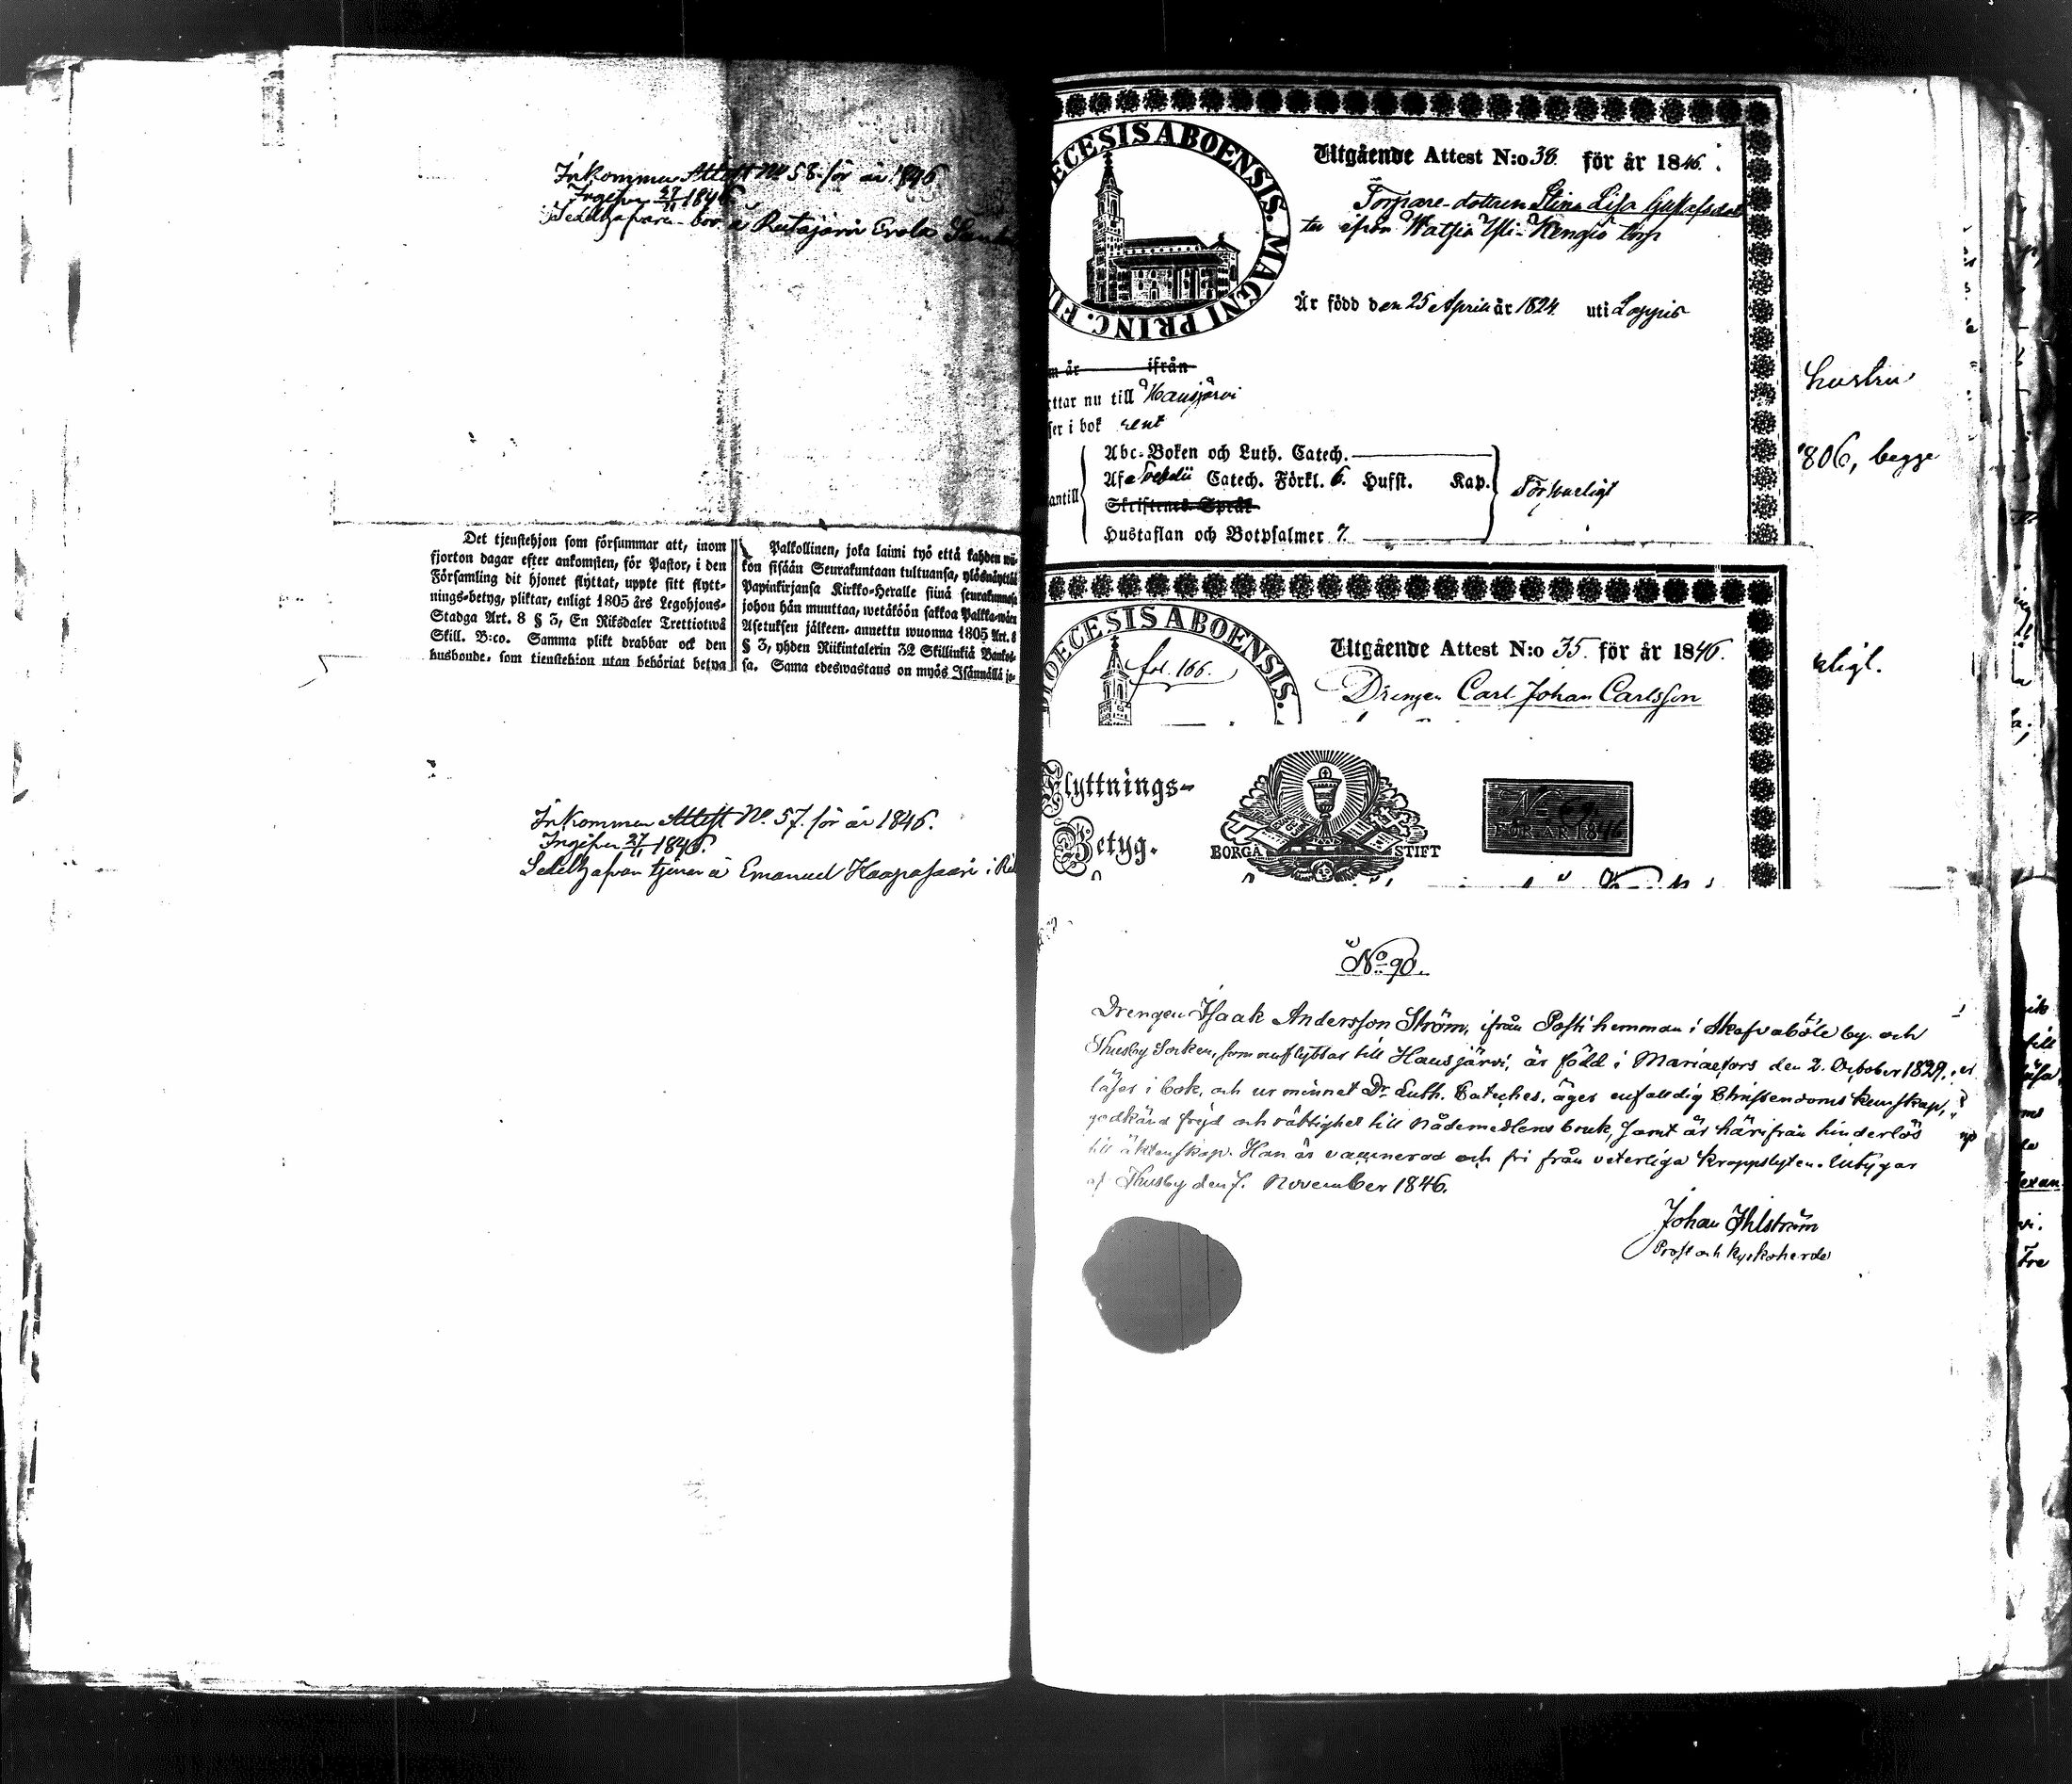 Inkommen Attest No 58. för år 1846
Ingifven 27/11 1846.
Sedelhafvaren bor å Ruttajärvi Erola
Det tjenstehjon som försummar att, inom
fjorton dagar efter ankomsten, för Pastor, i den
Församling dit hjonet flyttat, uppte sitt flytt-
nings-betyg, pliktar, enligt 1805 års Legohjons-
Stadga Art. 8 § 3, En Riksdaler Trettiotwå
Skill. B:co. Samma plikt drabbar ock den
husbonde, som tjenstehjon utan behörigt betyg
Palkollinen, joka laimi työ että kahden wii-
kon sisään Seurakuntaan tultuansa, ylösnäyttää
Papinkirjansa Kirkko-Heralle siinä seurakunnassa
johon hän muuttaa, wetäköön sakkoa Palkka-wäen
Asetuksen jälkeen, annettu wuonna 1805 Art. 8
§ 3, yhden Riikintalerin 32 Skillinkiä Banko-
sa. Sama edeswastaus on myös Isännällä jo-
Inkommen Attest No. 57. för år 1846.
Ingifven 27/11 1846.
Sedelhafvaren tjenar å Emanuel Haapasaari i
ECESIS ABOENSIS. MAGNI PRINC. FI
Utgående Attest N:o 38. för år 1846.
Torpare-dottren Stina Lisa Gustafsdot
ter ifrån Watsia Yli-Kengiö torp
Är född den 25 April år 1824. uti Loppis
m år ifrån
ttar nu till Hausjärvi
ser i bok rent
antill
Abc-Boken och Luth. Catech.
Af Svebelii Catech. Förkl. 6. Hufst. Kap.
Skriftenes Språk
Hustaflan och Botpsalmer 7.
Försvarligt
hustru
1806, begge
DIOECESIS ABOENSIS.
fol. 166.
Utgående Attest N:o 35. för år 1846.
Drengen Carl Johan Carlsson
rligt.
Flyttnings-
Betyg.
BORGÅ STIFT
FÖR ÅR 1846
No 90.
Drengen Isaak Andersson Ström, ifrån Posti hemman i Skafvaböle by och
Thusby Socken, som nu flyttar till Hausjärvi, är född i Mariaefors den 2. October 1829.
läser i bok, och ur minnet Dr. Luth. Cateches. äger enfalldig Christendoms kunskap,
godkänd frejd och rättighet till nådemedlens bruk, samt är härifrån hinderlös
till äktenskap. Han är vaccinerad och fri från veterliga kroppslyten. Intygar
af Thusby den 7. November 1846.
Johan Ihlström
Prost och kyrkoherde